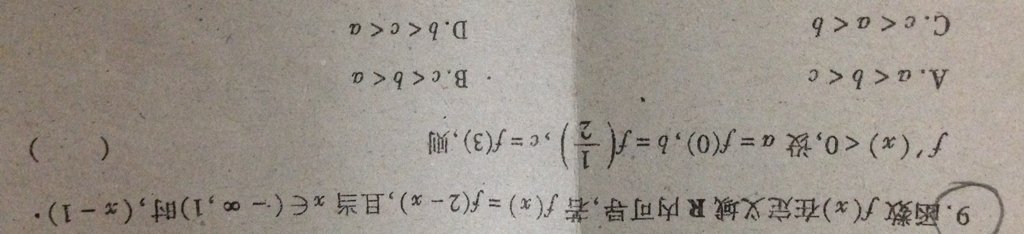 9.函数 f(x)在定义域 R 内可导,若 f(x)=f(2-x),且当 x∈(-∞,1)时,(x-1)·
f'(x)<0,设 a=f(0),b=f(1/2),c=f(3),则 ( )
A.a<b<c B.c<b<a
C.c<a<b D.b<c<a